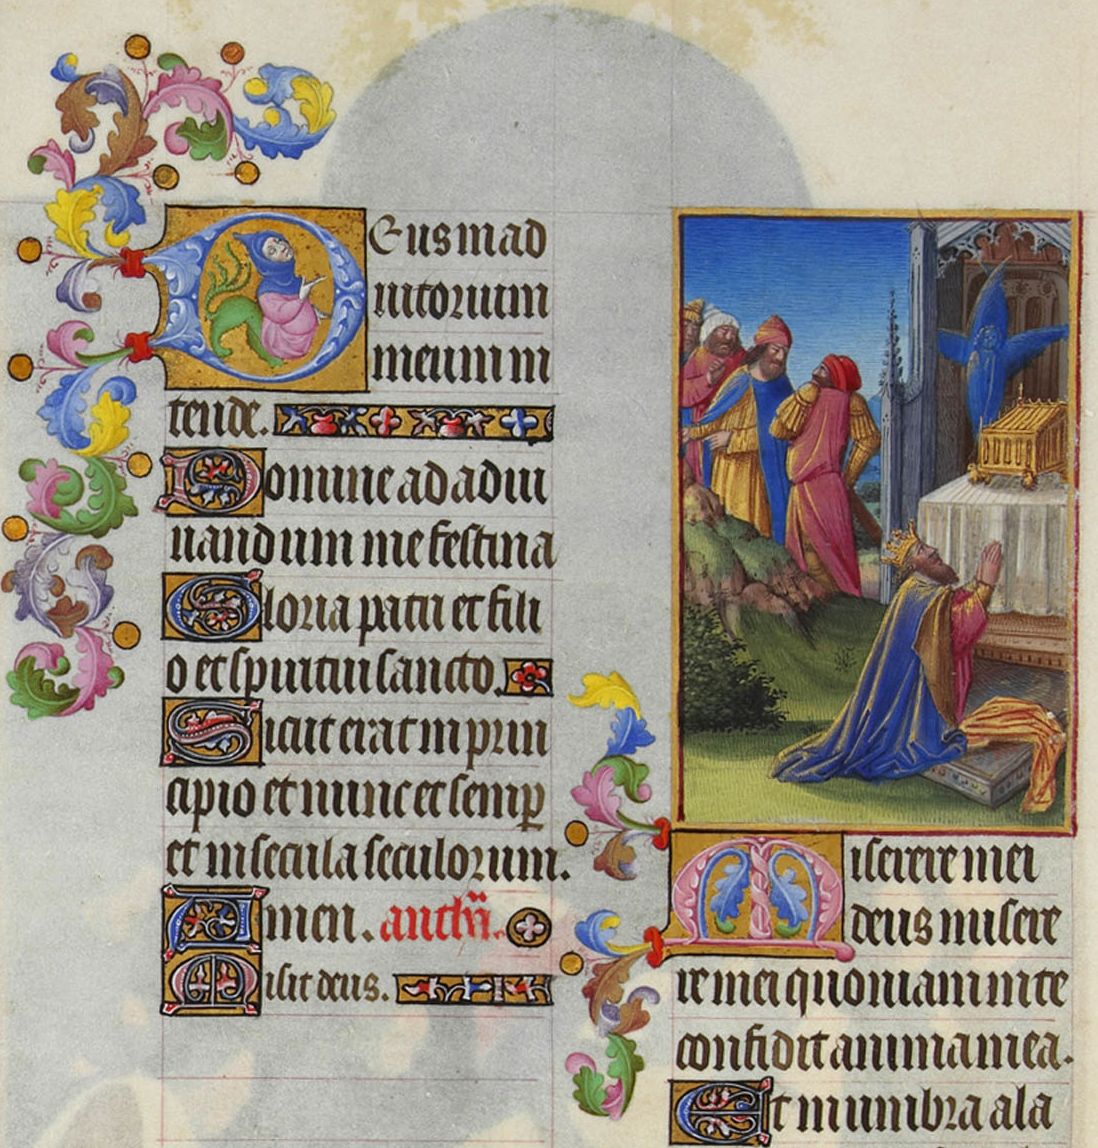 Deus in ad
iutorium
meum in
tende.
Domine ad adiu
uandum me festina
Gloria patri et fili
o et spiritui sancto.
Sicut erat in prin
cipio et nunc et semp
et in secula seculorum.
Amen. anth
Misit deus.
Miserere mei
deus misere
re mei quoniam in te
confidit anima mea.
Et in umbra ala